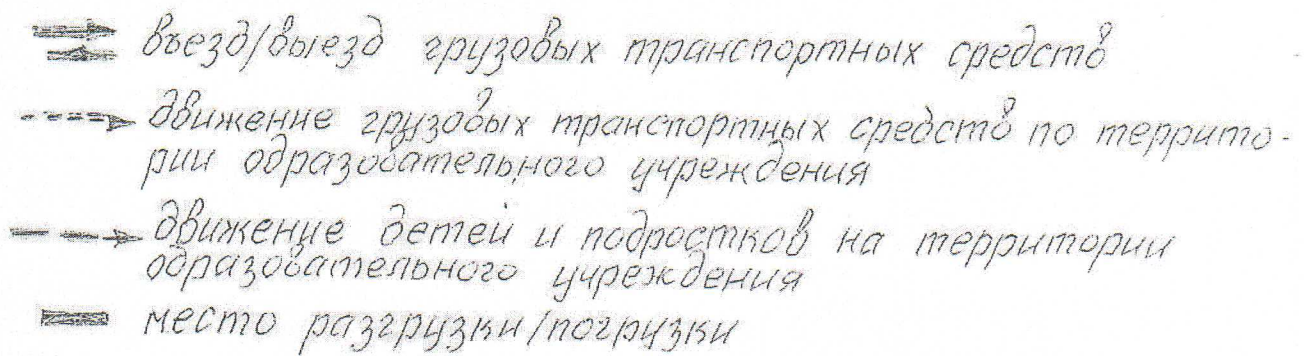 въезд/выезд грузовых транспортных средств
движение грузовых транспортных средств по террито-
рии образовательного учреждения
движение детей и подростков на территории
образовательного учреждения
место разгрузки/погрузки